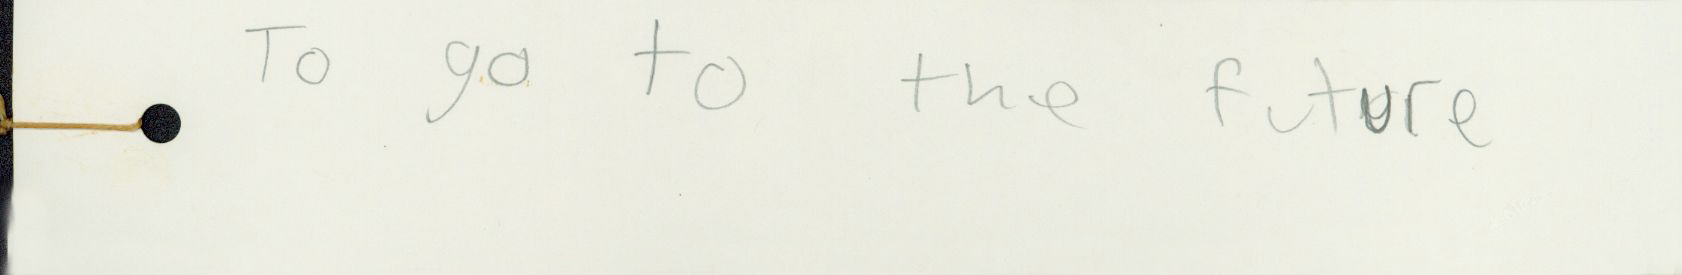 To go to the future